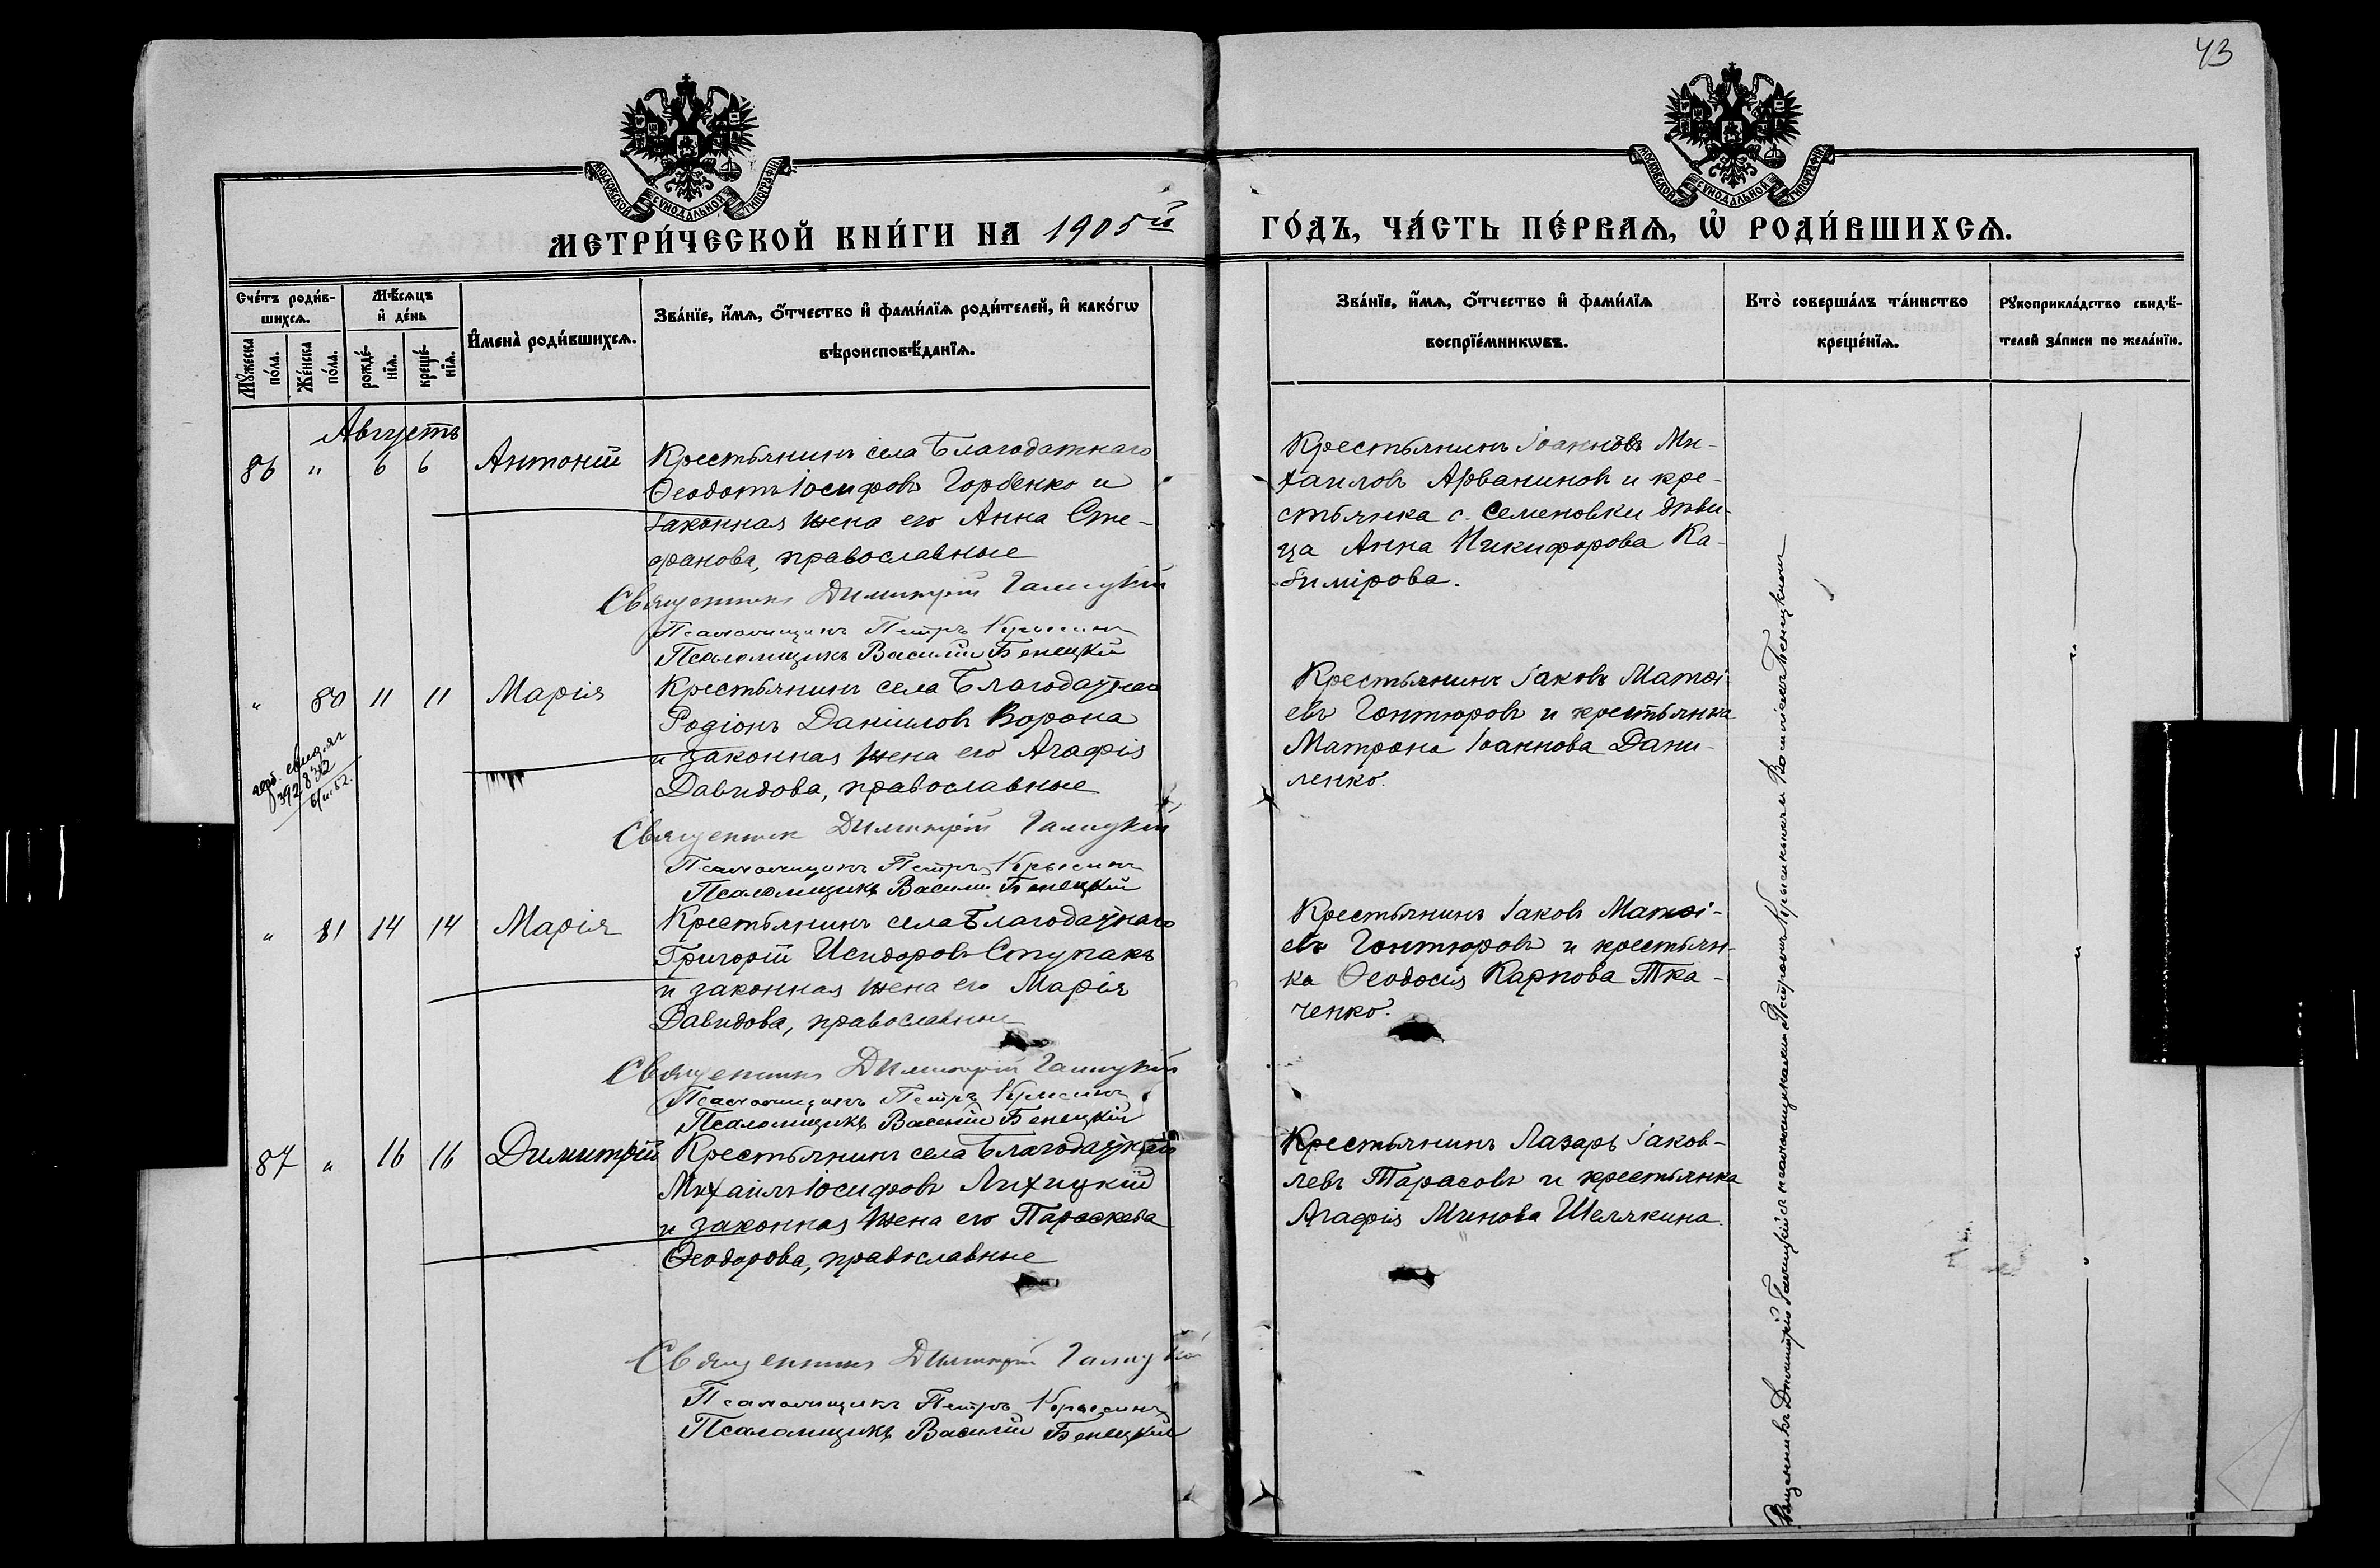 43
МОСКОВСКОЙ СѴНОДАЛЬНОЙ ТИПОГРАФІИ
МОСКОВСКОЙ СѴНОДАЛЬНОЙ ТИПОГРАФІИ
МЕТРИ́ЧЕСКОЙ КНИ́ГИ НА 1905й
ГО́ДЪ, ЧА́СТЬ ПЕ́РВАѦ, Ѿ РОДИ́ВШИХСѦ.
Сче́тъ роди́в-
шихсѧ.
Мꙋ́жеска
по́ла.
Же́нска
по́ла.
Мѣ́сѧцъ
и҆ де́нь
рожде́-
нїѧ.
креще́-
нїѧ.
И҆мена̀ роди́вшихсѧ.
Зва́нїе, и҆́мѧ, ѻ҆́тчество и҆ фами́лїѧ роди́телей, и҆ како́гѡ
вѣроисповѣ́данїѧ.
Зва́нїе, и҆́мѧ, ѻ҆́тчество и҆ фами́лїѧ
воспрїе́мникѡвъ.
Кто̀ соверша́лъ та́инство
креще́нїѧ.
Рꙋкоприкла́дство свидѣ́-
телей за́писи по жела́нїю.
Августъ
86 " 6 6 Антоній
Крестьянинъ села Благодатнаго
Ѳеодотъ Іосифовъ Горбенко и
законная жена его Анна Сте-
фанова, православные
Священникъ Димитрій Галицкій
Псаломщикъ Петръ Крысинъ
Псаломщикъ Василій Бенецкій
Крестьянинъ Іоанновъ Ми-
хаиловъ Арваниновъ и кре-
стьянка с. Семеновки дѣви-
ца Анна Никифорова Ка-
зимірова.
" 80 11 11 Марія
392832
Крестьянинъ села Благодатнаго
Родіонъ Даніиловъ Ворона
и законная жена его Агафія
Давидова, православные
Священник Димитрій Галицкій
Псаломщикъ Петръ Крысинъ
Псаломщикъ Василій Бенецкій
Крестьянинъ Іаковъ Матѳі-
евъ Гонтюровъ и крестьянка
Матрона Іоаннова Дани-
ленко.
" 81 14 14 Марія
Крестьянинъ села Благодатнаго
Григорій Исидоровъ Ступакъ
и законная жена его Марія
Давидова, православные
Священникъ Димитрій Галицкій
Псаломщикъ Петръ Крысинъ
Псаломщикъ Василій Бенецкій
Крестьянинъ Іаковъ Матѳі-
евъ Гонтюровъ и крестьян-
ка Ѳеодосія Карпова Тка-
ченко.
87 " 16 16 Димитрій
Крестьянинъ села Благодатнаго
Михаилъ Іосифовъ Лихицкій
и законная жена его Параскева
Ѳеодорова, православные
Священникъ Димитрій Галицкій
Псаломщикъ Петръ Крысинъ
Псаломщикъ Василій Бенецкій
Крестьянинъ Лазарь Іаков-
левъ Тарасовъ и крестьянка
Агафія Минова Шелякина.
Священникъ Димитрій Галицкій съ псаломщиками Петромъ Крысинымъ и Василіемъ Бенецкимъ